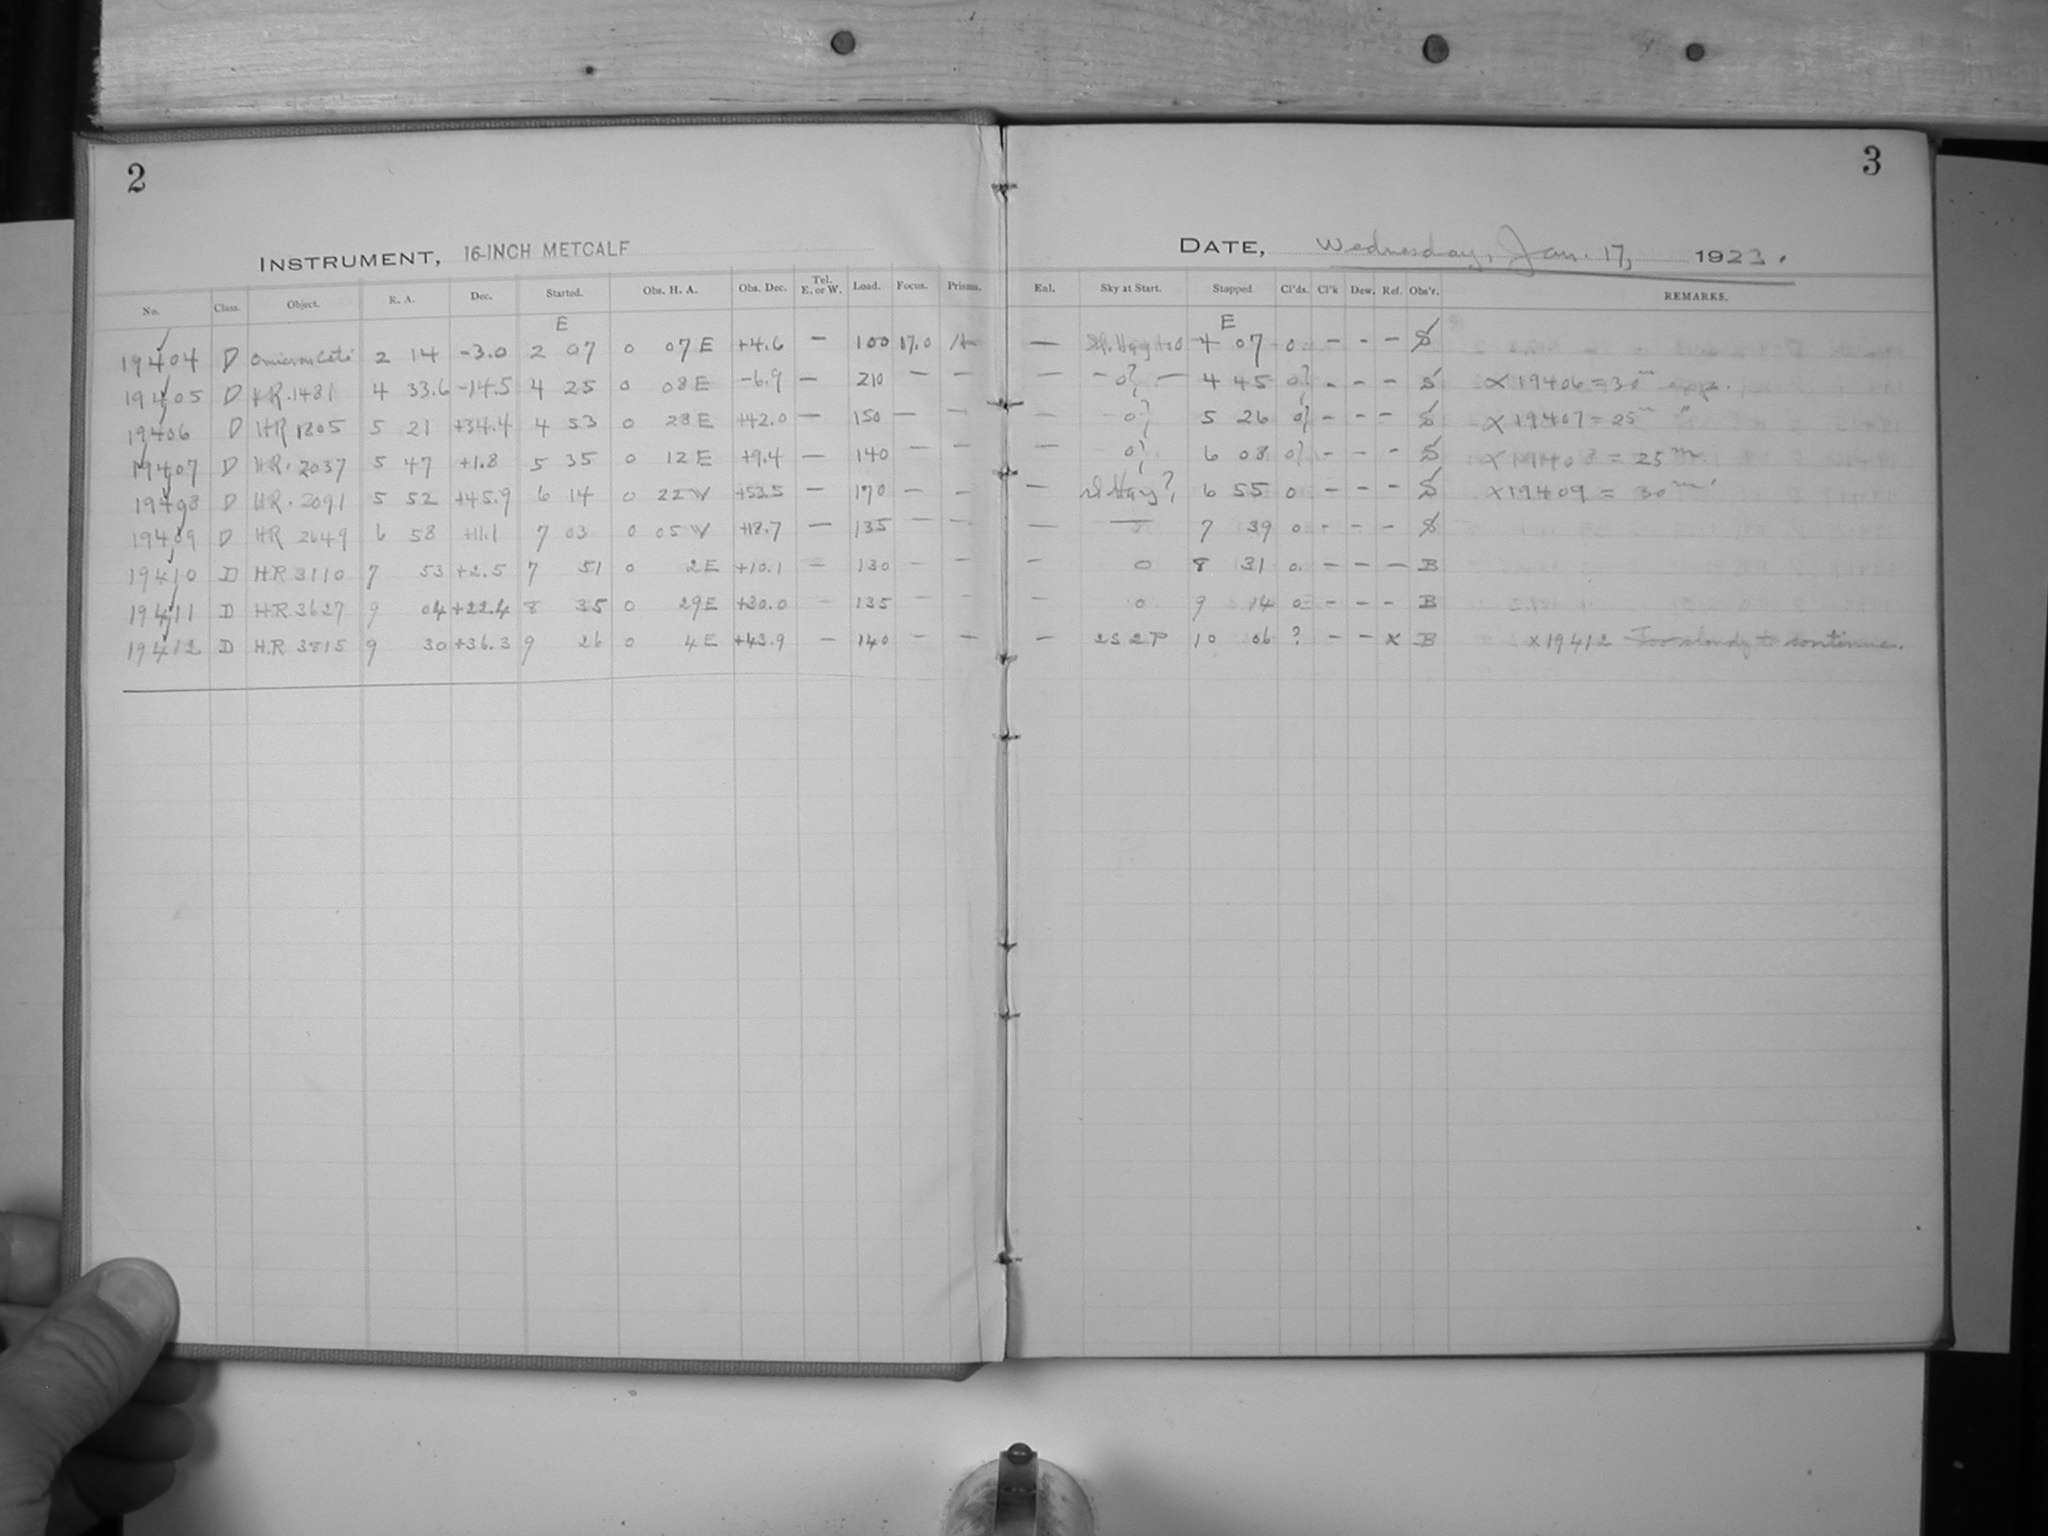 2
INSTRUMENT, 16-INCH METCALF
No. Class. Object. R. A. Dec. Started. Obs. H. A. Obs. Dec. Tel. E. or W. Load. Focus. Prisms.
E
19404 D Omicron Ceti 2 14 -3.0 2 07 0 07 E +4.6 — 100 17.0
19405 D HR.1481 4 33.6 -14.5 4 25 0 08 E -6.9 — 210 — —
19406 D HR 1805 5 21 +34.4 4 53 0 28 E +42.0 — 150 — —
19407 D HR. 2037 5 47 +1.8 5 35 0 12 E +9.4 — 140 — —
19408 D HR. 2091 5 52 +45.9 6 14 0 22 W +53.5 — 170 — —
19409 D HR 2649 6 58 +11.1 7 03 0 05 W +18.7 — 135 — —
19410 D H.R 3110 7 53 +2.5 7 51 0 2 E +10.1 — 130 — —
19411 D H.R 3627 9 04 +22.4 8 35 0 29 E +30.0 — 135 — —
19412 D H.R 3815 9 30 +36.3 9 26 0 4 E +43.9 — 140 — —
3
DATE, Wednesday, Jan. 17, 1923.
Enl. Sky at Start. Stopped. Cl'ds. Cl'k Dew. Ref. Obs'r. REMARKS.
E
— 4 07 0 - - - S
— 0? — 4 45 0? - - - S × 19406 = 30m exp.
— 0? 5 26 0? - - - S × 19407 = 25m "
— 0? 6 08 0? - - - S × 19408 = 25m
— Hazy? 6 55 0 - - - S × 19409 = 30m
— — 7 39 0 - - - S
— 0 8 31 0 - - - B
0 9 14 0 - - - B
— 2S 2P 10 06 ? - - × B × 19412 Too cloudy to continue.